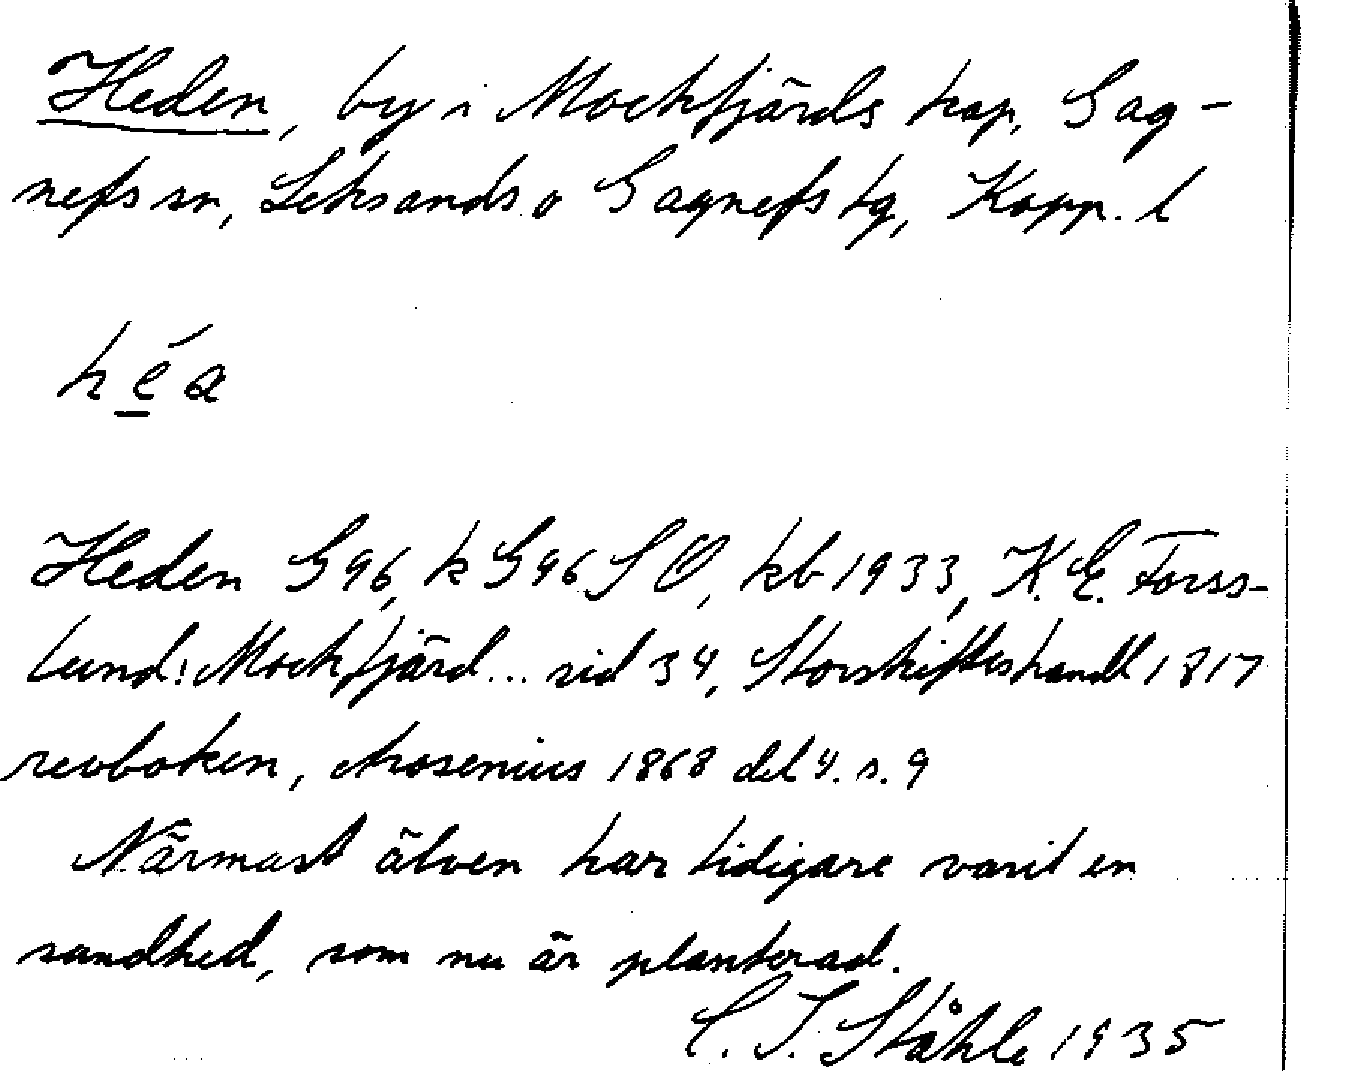 Heden, by i Mockfjärds kap, Gag-
nefs sn, Leksands o Gagnefs tg, Kopp. l
héa
Heden G96, k G96 SO, kb 1933, K. E. Forss-
lund: Mockfjärd... sid 34, Storskifteshandl 1817
revboken, Arosenius 1868 del 4. s. 9
Närmast älven har tidigare varit en
sandhed, som nu är planterad.
C. I. Ståhle 1935